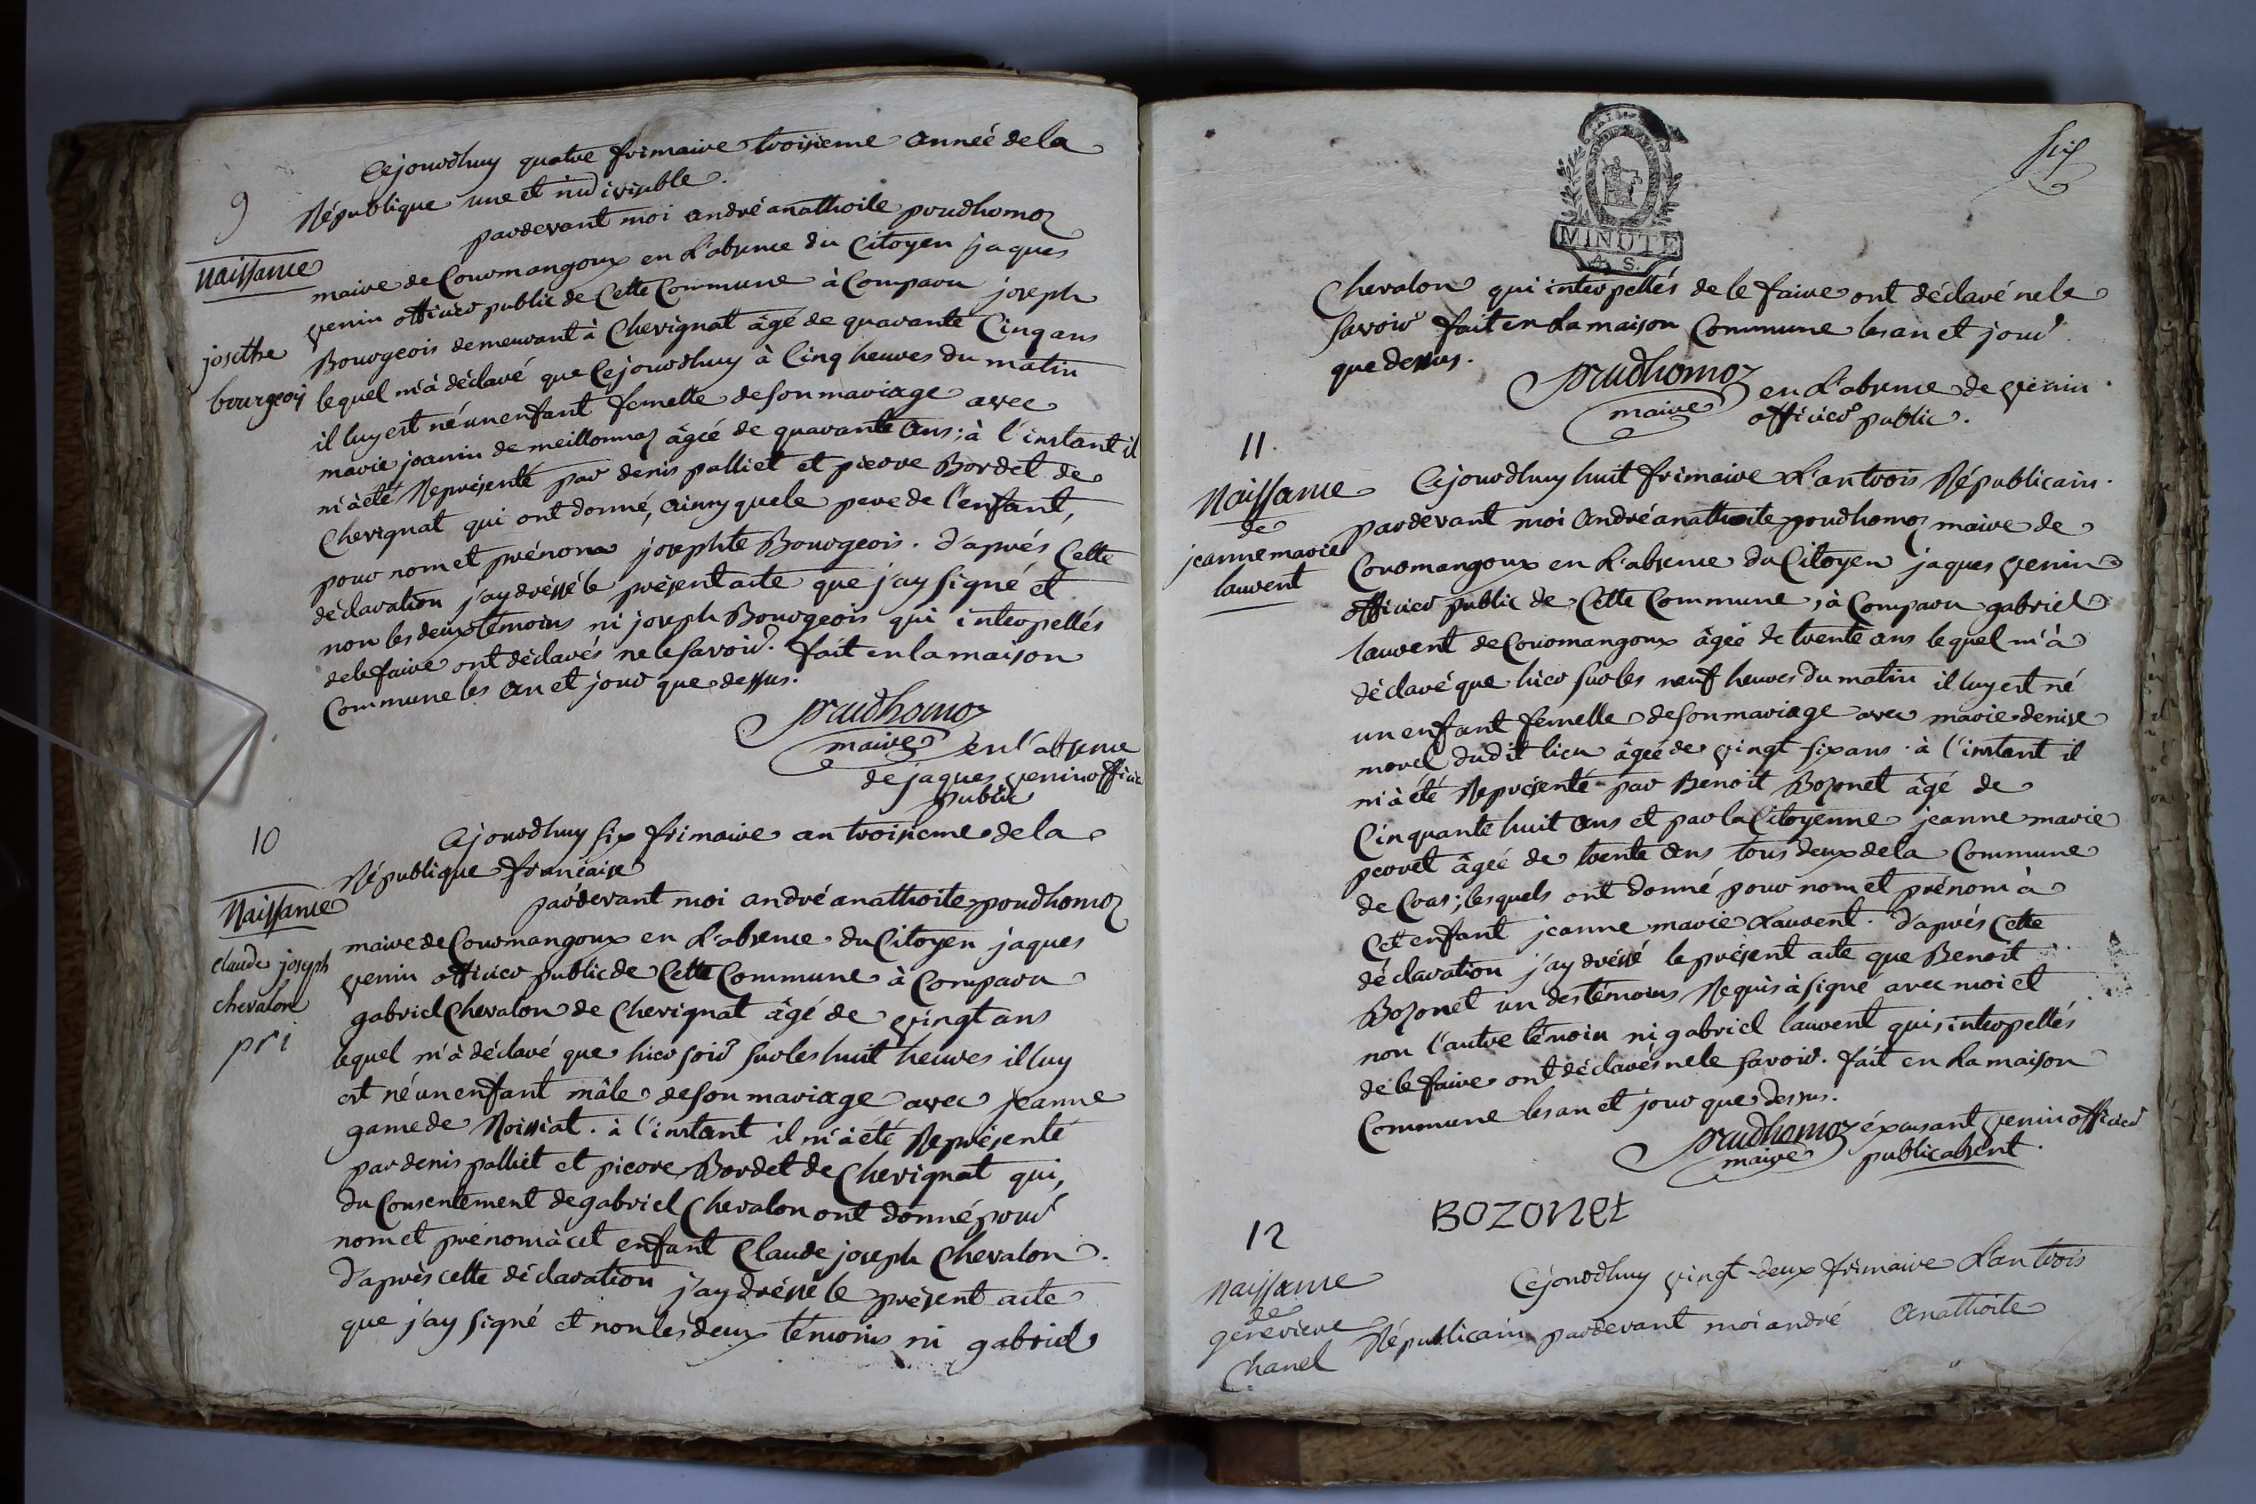 9
Naissance
josethe
bourgeois
Cejourdhuy quatre frimaire troisieme année de la
République une et indivisible.
pardevant moi andré anathoile prudhomoz
maire de Courmangoux en L'absence du Citoyen jaques
venin officier public de Cette Commune à Comparu joseph
Bourgeois demeurant à Chevignat âgé de quarante Cinq ans
lequel m'à déclaré que Cejourdhuy à Cinq heures du matin
il luy est né un enfant femelle de son mariage avec
marie joannin de meillonnaz âgée de quarante Ans; à l'instant il
m'à été Représenté par denis palliet et pierre Bordet de
Chevignat qui ont donné, ainsy que le pere de l'enfant,
pour nom et prénom josephte Bourgeois. d'aprés Cette
déclaration j'ay dréssé le présent acte que j'ay signé et
non les deux témoins ni joseph Bourgeois qui interpellés
de le faire ont déclarés ne le savoir. fait en la maison
Commune les an et jour que dessus.
prudhomoz
maire en l'absence
de jaques venin officier
public
10
Naissance
claude joseph
chevalon
pr i
Cejourdhuy six frimaire an troisieme de la
République francaise
pardevant moi andré anathoile prudhomoz
maire de Courmangoux en L'absence du Citoyen jaques
venin officier public de Cette Commune à Comparu
gabriel Chevalon de Chevignat âgé de vingt ans
lequel m'à déclaré que hier soir sur les huit heures il luy
est né un enfant mâle de son mariage avec jeanne
game de Roissiat. à l'instant il m'à été Représenté
par denis palliet et pierre Bordet de Chevignat qui,
du Consentement de gabriel Chevalon ont donné pour
nom et prénom à cet enfant Claude joseph Chevalon.
d'aprés cette déclaration j'ay dréssé le présent acte
que j'ay signé et non les deux témoins ni gabriel
six
MINUTE
A. S.
Chevalon qui interpellés de le faire ont déclaré ne le
savoir fait en La maison Commune les an et jour
que dessus.
prudhomoz
maire en L'absence de venin
officier public.
11.
Naissance
de
jeanne marie
laurent
Cejourdhuy huit frimaire L'an trois Républicain.
pardevant moi André anathoile prudhomoz maire de
Courmangoux en L'absence du Citoyen jaques venin
officier public de Cette Commune, à Comparu gabriel
laurent de Courmangoux âgée de trente ans lequel m'à
déclaré que hier sur les neuf heures du matin il luy est né
un enfant femelle de son mariage avec marie denise
morel dudit lieu âgée de vingt six ans. à l'instant il
m'à été Représenté par Benoit Bozonet âgé de
Cinquante huit Ans et par la Citoyenne jeanne marie
perret âgée de trente Ans tous deux de la Commune
de Cras; lesquels ont donné pour nom et prénom à
Cet enfant jeanne marie Laurent. d'aprés Cette
déclaration j'ay dréssé le présent acte que Benoit
Bozonet un des témoins Requis à signé avec moi et
non l'autre témoin ni gabriel laurent qui interpellés
de le faire ont déclarés ne le savoir. fait en La maison
Commune les an et jour que dessus.
prudhomoz éxcusant venin officier
maire public absent.
BOZONEt
12
Naissance
de
genevieve
Chanel
Cejourdhuy vingt-deux frimaire L'an trois
Républicain pardevant moi andré Anathoile